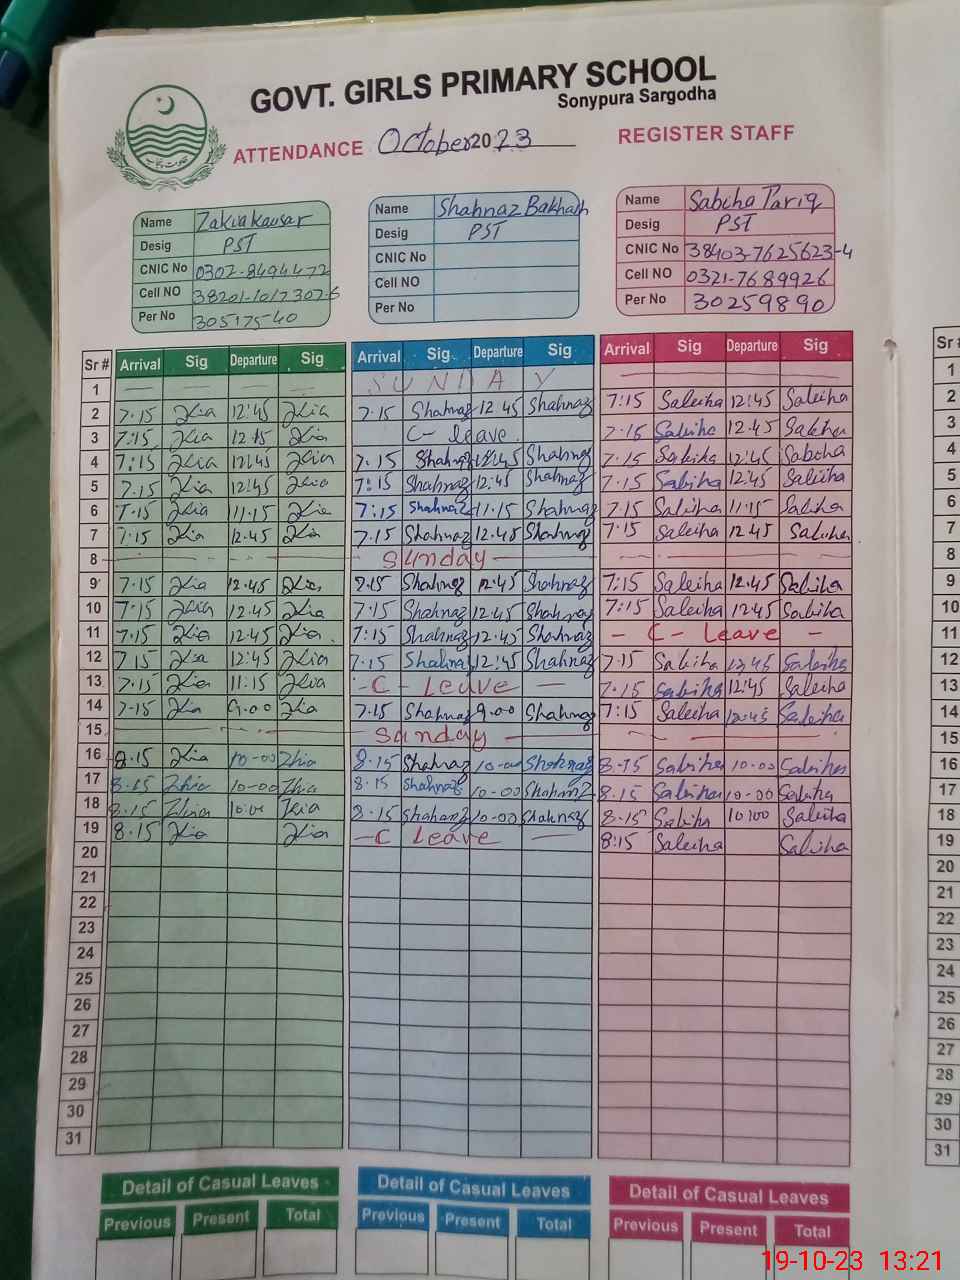 GOVT. GIRLS PRIMARY SCHOOL
Sonypura Sargodha
ATTENDANCE October 2023 REGISTER STAFF
حکومت پنجاب
Name Zakia Kausar Name Shahnaz Bakhath Name Sabiha Tariq
Desig PST Desig PST Desig PST
CNIC No 0302-8494472 CNIC No CNIC No 38403-7625623-4
Cell NO 38201-1017307-6 Cell NO Cell NO 0321-7689926
Per No 30517540 Per No Per No 30259890
Sr # Arrival Sig Departure Sig Arrival Sig Departure Sig Arrival Sig Departure Sig Sr #
1 SUNDAY 1
2 7.15 Zkia 12:45 Zkia 7.15 Shahnaz 12 45 Shahnaz 7:15 Sabiha 12:45 Sabiha 2
3 7:15 Zkia 12 45 Zkia C- leave 7.15 Sabiha 12.45 Sabiha 3
4 7:15 Zkia 12:45 Zkia 7.15 Shahnaz 12:45 Shahnaz 7.15 Sabiha 12:45 Sabiha 4
5 7.15 Zkia 12:45 Zkia 7:15 Shahnaz 12:45 Shahnaz 7.15 Sabiha 12:45 Sabiha 5
6 7.15 Zkia 11.15 Zkia 7:15 Shahnaz 11.15 Shahnaz 7.15 Sabiha 11.15 Sabiha 6
7 7:15 Zkia 12.45 Zkia 7.15 Shahnaz 12.45 Shahnaz 7:15 Sabiha 12.45 Sabiha 7
8 Sunday 8
9 7.15 Zkia 12.45 Zkia 7.15 Shahnaz 12.45 Shahnaz 7:15 Sabiha 12.45 Sabiha 9
10 7:15 Zkia 12.45 Zkia 7:15 Shahnaz 12.45 Shahnaz 7:15 Sabiha 12.45 Sabiha 10
11 7.15 Zkia 12.45 Zkia 7:15 Shahnaz 12.45 Shahnaz - C- Leave - 11
12 7 15 Zkia 12:45 Zkia 7.15 Shahnaz 12:45 Shahnaz 7.15 Sabiha 12,45 Sabiha 12
13 7.15 Zkia 11.15 Zkia -C- Leave - 7.15 Sabiha 12:45 Sabiha 13
14 7.15 Zkia 9.00 Zkia 7.15 Shahnaz 9.00 Shahnaz 7:15 Sabiha 12:45 Sabiha 14
15 Sunday 15
16 8.15 Zkia 10-00 Zkia 8.15 Shahnaz 10-00 Shahnaz 8.15 Sabiha 10.00 Sabiha 16
17 8.15 Zkia 10-00 Zkia 8.15 Shahnaz 10-00 Shahnaz 8.15 Sabiha 10-00 Sabiha 17
18 8.15 Zkia 10:00 Zkia 8.15 Shahnaz 10-00 Shahnaz 8.15 Sabiha 10:00 Sabiha 18
19 8.15 Zkia Zkia -C Leave - 8:15 Sabiha Sabiha 19
20 20
21 21
22 22
23 23
24 24
25 25
26 26
27 27
28 28
29 29
30 30
31 31
Detail of Casual Leaves Detail of Casual Leaves Detail of Casual Leaves
Previous Present Total Previous Present Total Previous Present Total
19-10-23 13:21